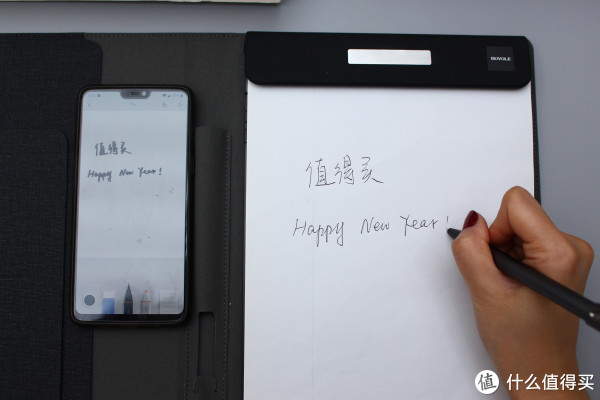 ROYOLE
值得买
Happy New Year!
值得买
Happy New Year!
值 什么值得买